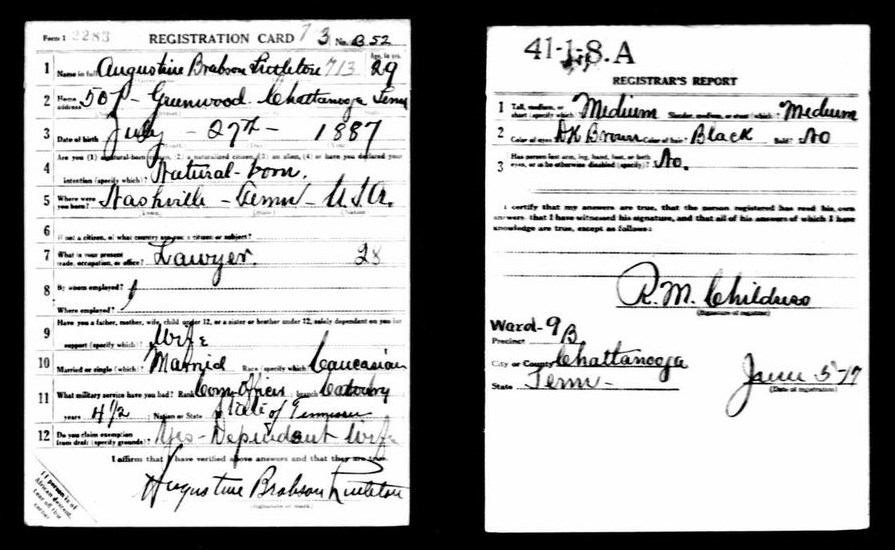 Form 1 2283 REGISTRATION CARD 73 No. B 52
Age, in yrs.
1 Name in full Augustine Brabson Littleton 713 29
2 Home address 507 - Greenwood Chattanooga Tenn
3 Date of birth July - 27th - 1887
4 Are you (1) a natural-born citizen, (2) a naturalized citizen, (3) an alien, (4) or have you declared your
intention (specify which)? Natural-born.
5 Where were you born? Nashville - Tenn - U.S.A.
(Town) (State) (Nation)
6 If not a citizen, of what country are you a citizen or subject?
7 What is your present trade, occupation, or office? Lawyer. 28
8 By whom employed?
Where employed?
9 Have you a father, mother, wife, child under 12, or a sister or brother under 12, solely dependent on you for
support (specify which)? Wife
10 Married or single (which)? Married Race (specify which)? Caucasian
11 What military service have you had? Rank Com-Officer branch
years 4 1/2 Nation or State State of Tennessee
12 Do you claim exemption from draft (specify grounds)? Yes - Dependant Wife
I affirm that I have verified above answers and that they are true.
Augustine Brabson Littleton
(Signature or mark)
If person is of
African descent,
tear off this
corner
41-1-8.A
REGISTRAR'S REPORT
1 Tall, medium, or short (specify which)? Medium Slender, medium, or stout (which)? Medium
2 Color of eyes? Dk Brown Color of hair? Black Bald? No
3 Has person lost arm, leg, hand, foot, or both
eyes, or is he otherwise disabled (specify)? No.
I certify that my answers are true, that the person registered has read his own
answers, that I have witnessed his signature, and that all of his answers of which I have
knowledge are true, except as follows:
R.M. Childress
(Signature of registrar)
Ward- 9
Precinct B
City or County Chattanooga
State Tenn - June 5-17
(Date of registration)